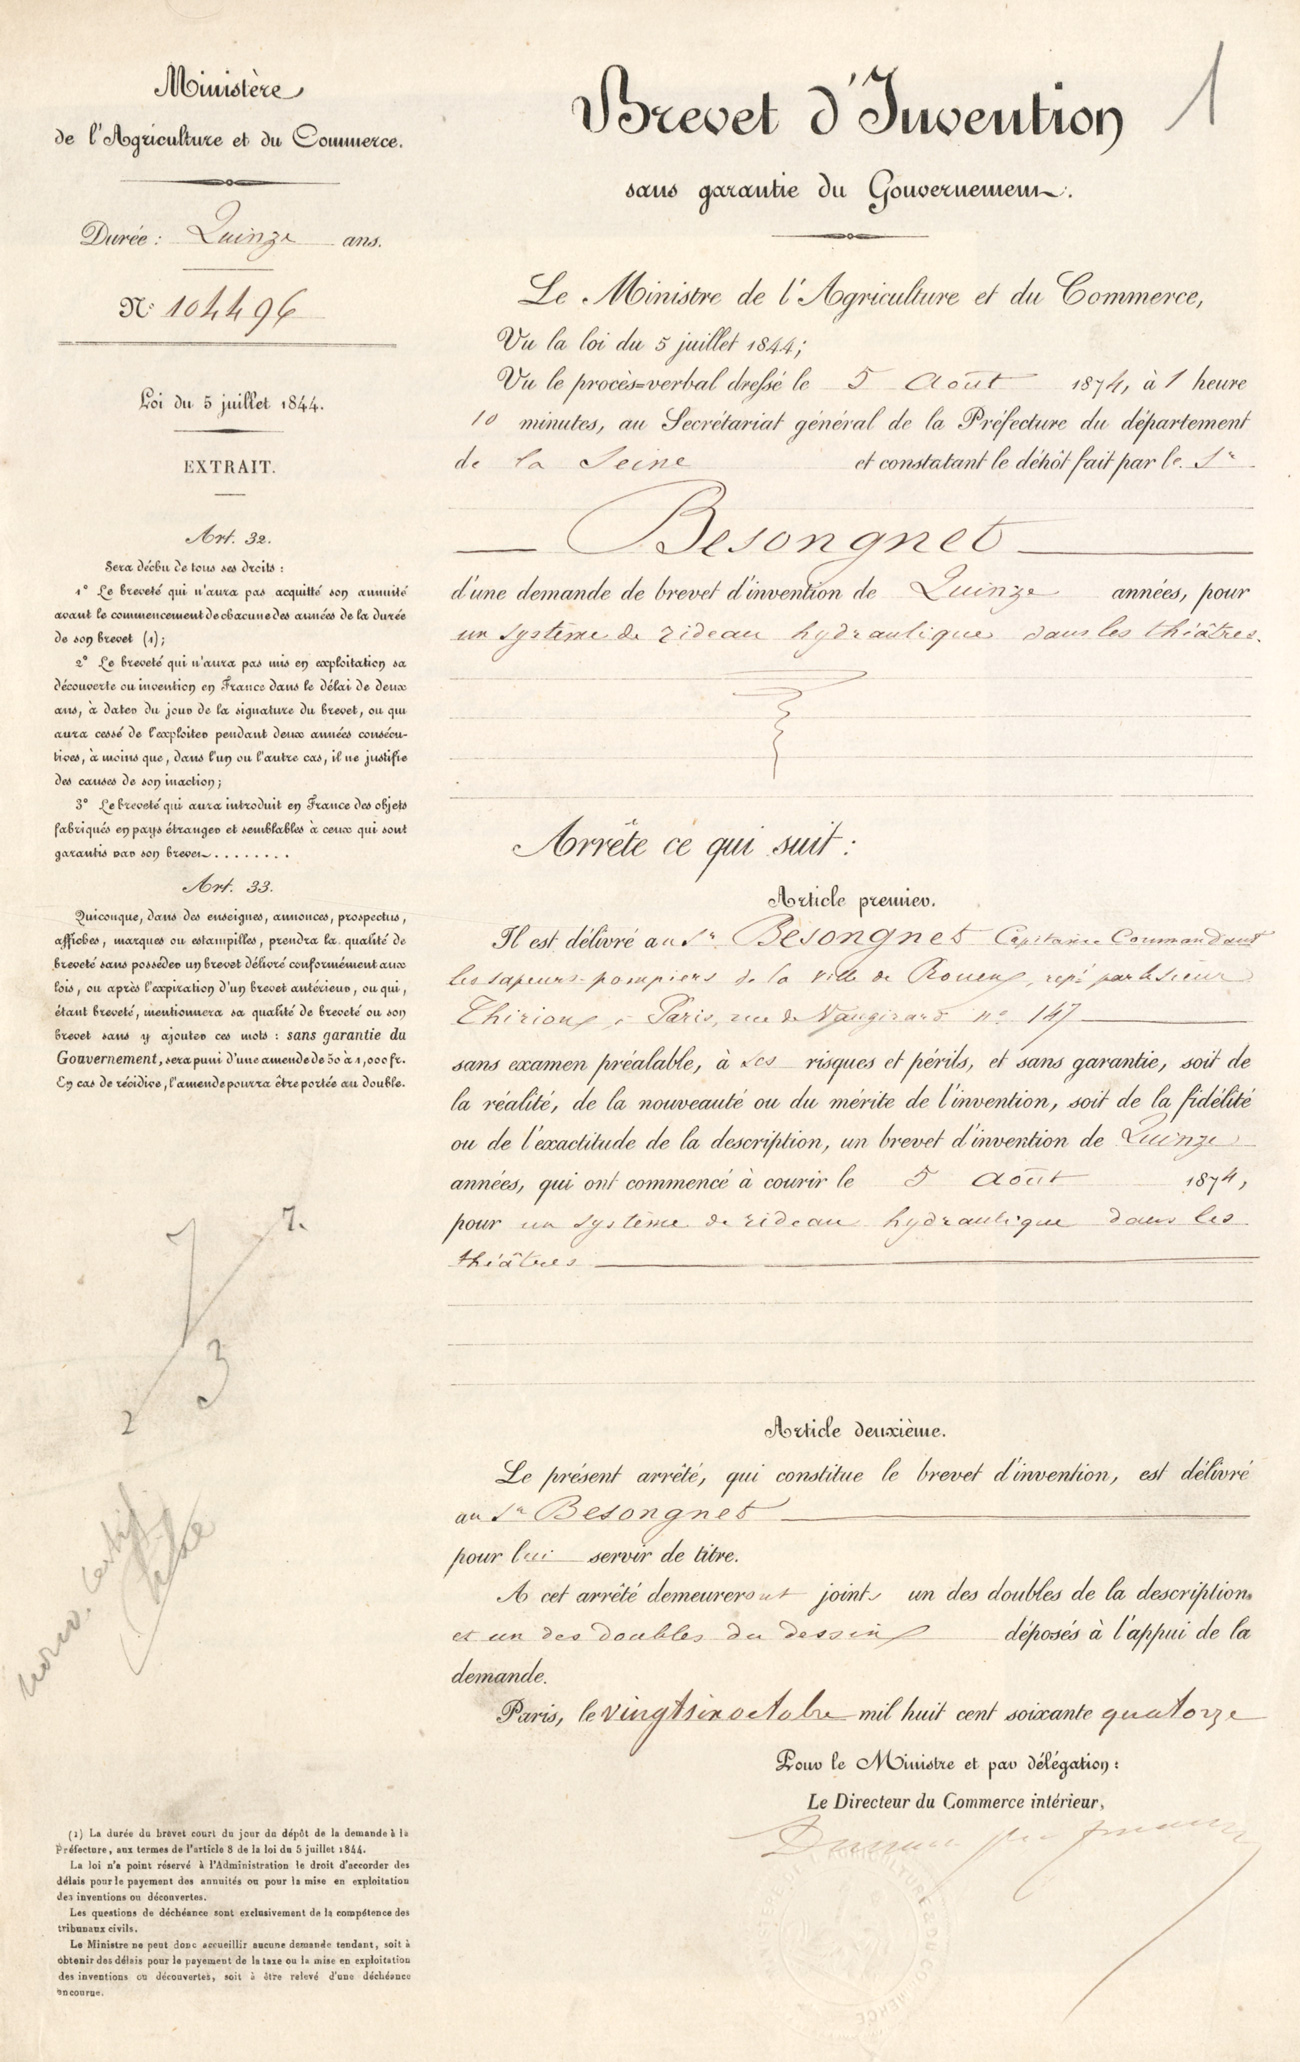 Ministère
de l'Agriculture et du Commerce.
Durée : Quinze ans.
N° 104496
Loi du 5 juillet 1844.
EXTRAIT.
Art. 32.
Sera déchu de tous ses droits :
1° Le breveté qui n'aura pas acquitté son annuité
avant le commencement de chacune des années de la durée
de son brevet (1);
2° Le breveté qui n'aura pas mis en exploitation sa
découverte ou invention en France dans le délai de deux
ans, à dater du jour de la signature du brevet, ou qui
aura cessé de l'exploiter pendant deux années consécu-
tives, à moins que, dans l'un ou l'autre cas, il ne justifie
des causes de son inaction;
3° Le breveté qui aura introduit en France des objets
fabriqués en pays étranger et semblables à ceux qui sont
garantis par son brevet........
Art. 33.
Quiconque, dans des enseignes, annonces, prospectus,
affiches, marques ou estampilles, prendra la qualité de
breveté sans posséder un brevet délivré conformément aux
lois, ou après l'expiration d'un brevet antérieur, ou qui,
étant breveté, mentionnera sa qualité de breveté ou son
brevet sans y ajouter ces mots : sans garantie du
Gouvernement, sera puni d'une amende de 50 à 1,000 fr.
En cas de récidive, l'amende pourra être portée au double.
7 7.
3
2
(1) La durée du brevet court du jour du dépôt de la demande à la
Préfecture, aux termes de l'article 8 de la loi du 5 juillet 1844.
La loi n'a point réservé à l'Administration le droit d'accorder des
délais pour le payement des annuités ou pour la mise en exploitation
des inventions ou découvertes.
Les questions de déchéance sont exclusivement de la compétence des
tribunaux civils.
Le Ministre ne peut donc accueillir aucune demande tendant, soit à
obtenir des délais pour le payement de la taxe ou la mise en exploitation
des inventions ou découvertes, soit à être relevé d'une déchéance
encourue.
1
Brevet d'Invention
sans garantie du Gouvernement.
Le Ministre de l'Agriculture et du Commerce,
Vu la loi du 5 juillet 1844;
Vu le procès-verbal dressé le 5 Août 1874, à 1 heure
10 minutes, au Secrétariat général de la Préfecture du département
de la Seine et constatant le dépôt fait par le Sr
Besongnet
d'une demande de brevet d'invention de Quinze années, pour
un système de rideau hydraulique dans les théâtres.
Arrête ce qui suit :
Article premier.
Il est délivré au Sr Besongnet Capitaine Commandant
les sapeurs-pompiers de la ville de Rouen, repé par le sieur
Thirion, à Paris, rue de Vaugirard n° 147
sans examen préalable, à ses risques et périls, et sans garantie, soit de
la réalité, de la nouveauté ou du mérite de l'invention, soit de la fidélité
ou de l'exactitude de la description, un brevet d'invention de Quinze
années, qui ont commencé à courir le 5 Août 1874,
pour un système de rideau hydraulique dans les
théâtres
Article deuxième.
Le présent arrêté, qui constitue le brevet d'invention, est délivré
au Sr Besongnet
pour lui servir de titre.
A cet arrêté demeureront joints un des doubles de la description
et un des doubles du dessin déposés à l'appui de la
demande.
Paris, le vingt six octobre mil huit cent soixante quatorze
Pour le Ministre et par délégation :
Le Directeur du Commerce intérieur,